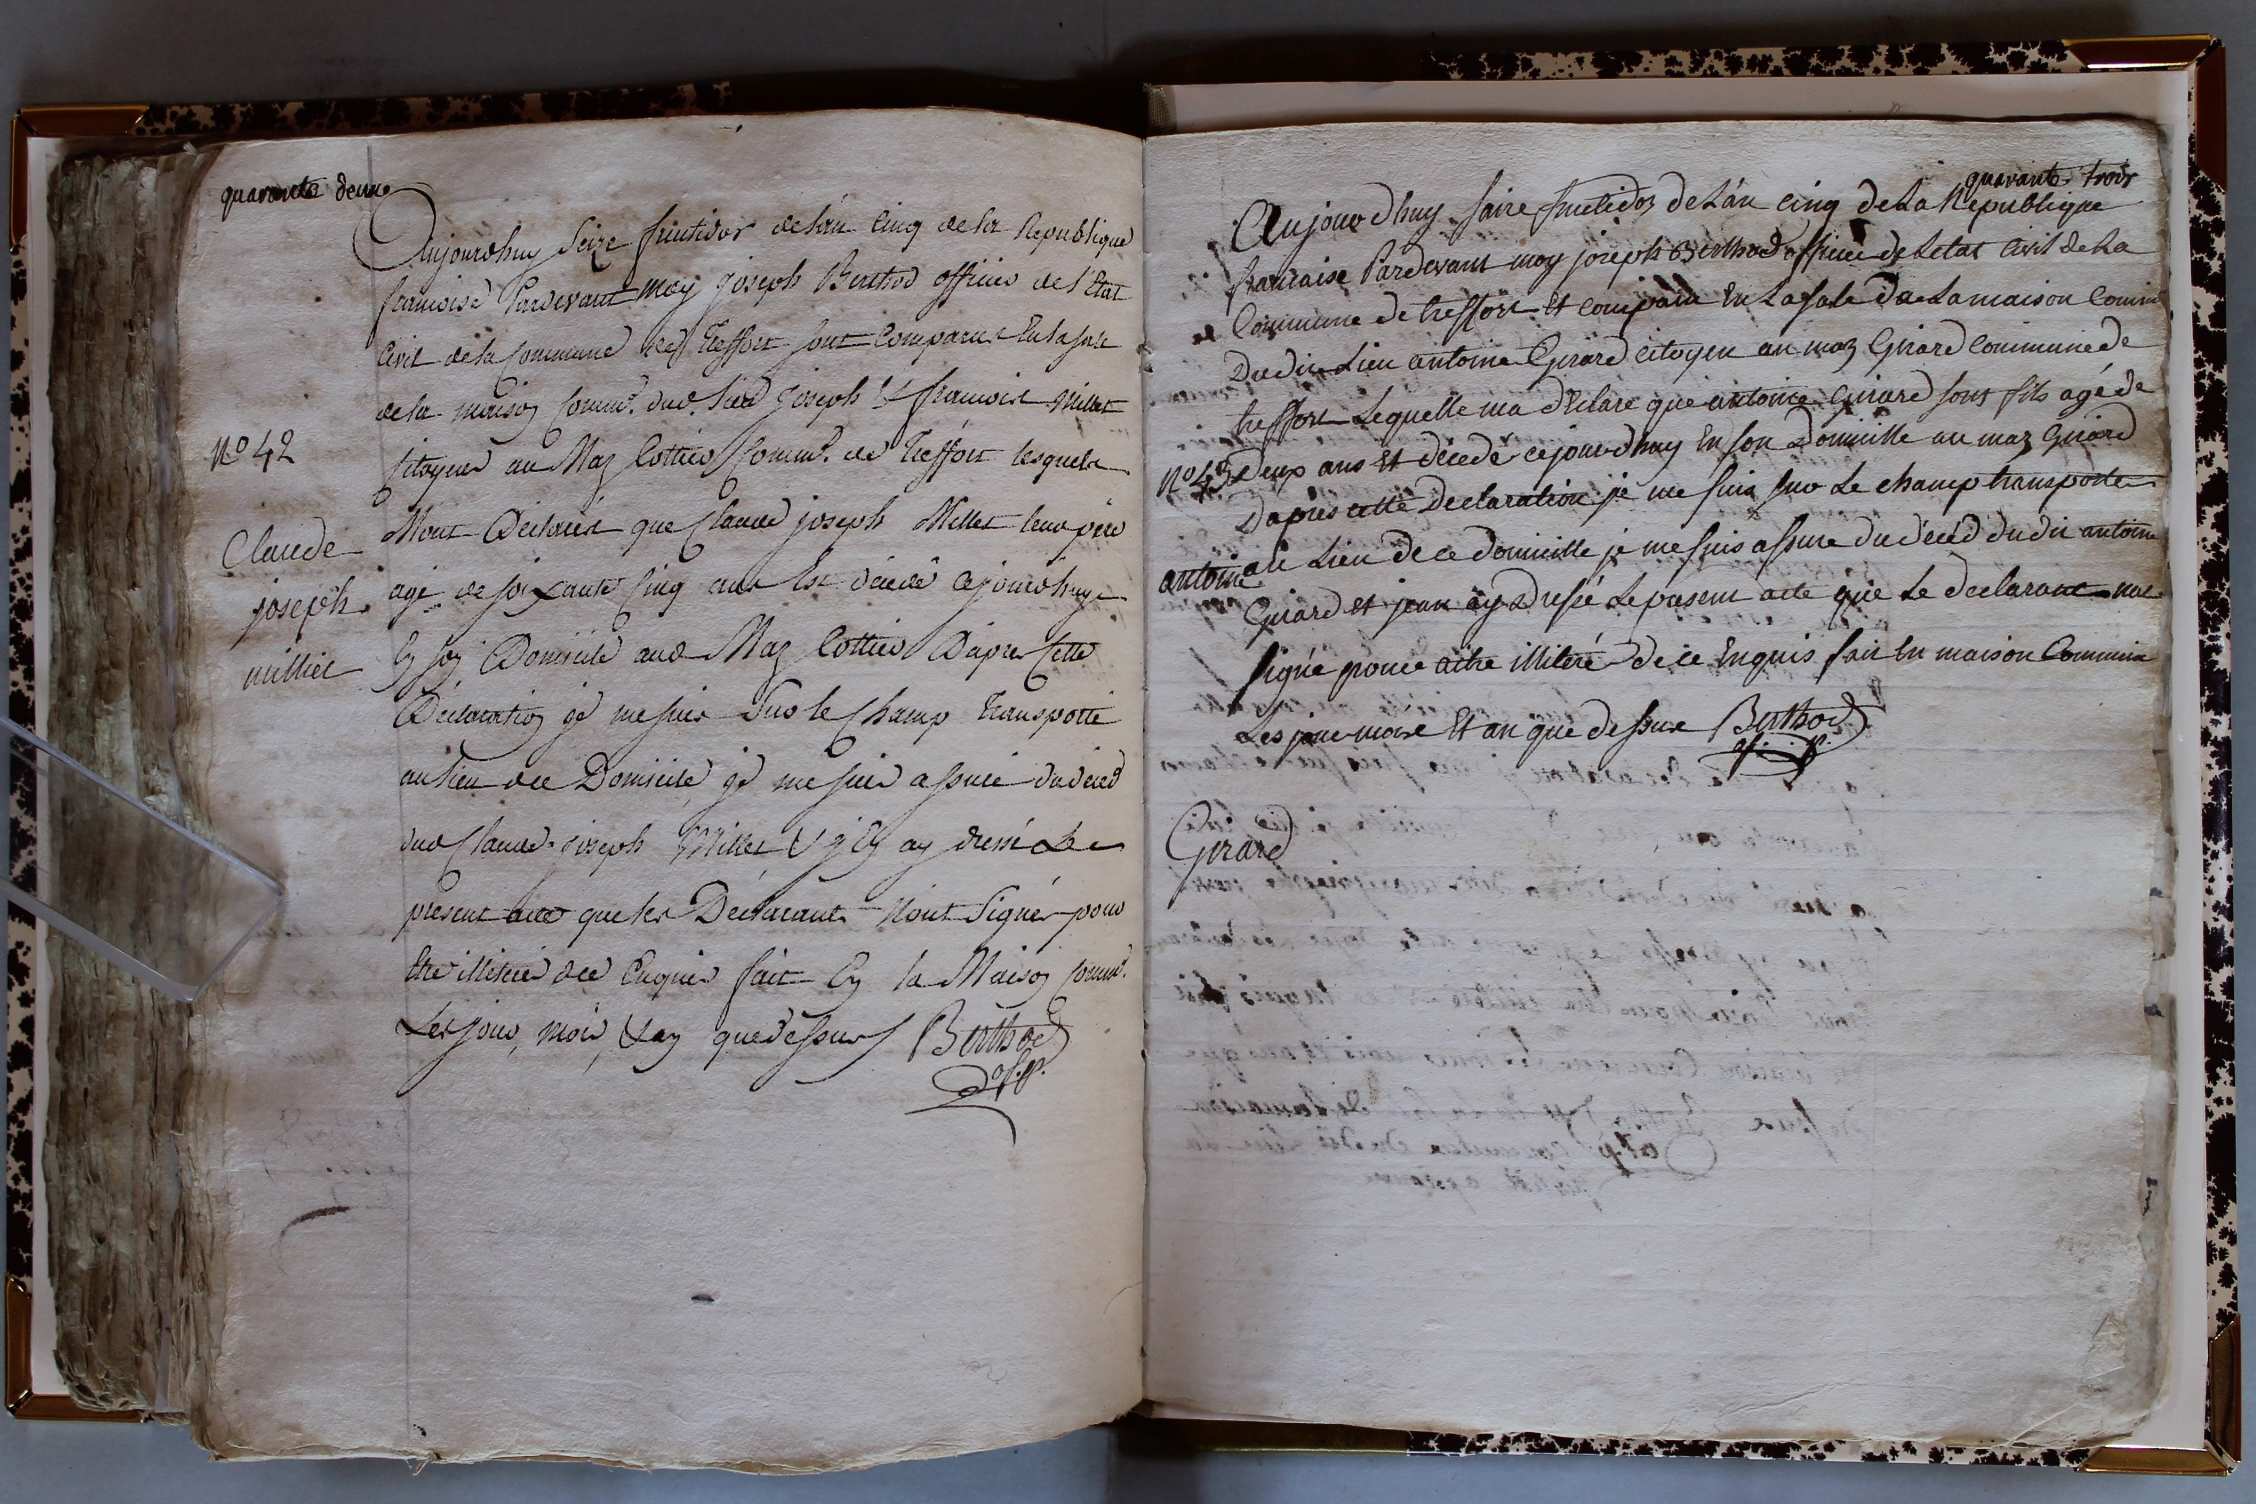 quarante deux
Aujourdhuy Seize fructidor de l'an Cinq de la Republique
francoise Pardevant moy joseph Berthod officier de l'Etat
Civil de la Commune de Treffort sont Comparus En la sale
de la maison Commne. dud. Lieu Joseph & francoise Millet
Citoyens au Maz Cottier Commne. de Treffort lesquels
Mont Déclarés que Claude joseph Millet leur père
agé de soixante Cinq ans Est décédé Cejourdhuy
En son Domicile aud Maz Cottier D'apres Cette
Déclaration je me suis Sur le Champ Transporté
au lieu dee Domicile, je me suis assuré du déced
dud Claude joseph Millet & j'En ay dressé Le
présent acte que les Déclarants N'ont Signés pour
Etre illiterés dee Enquis fait En la Maison Commne.
Les jour, mois, & an que dessus Berthod
of. p.
N° 42
Claude
joseph
milliet
quarante trois
Aujourdhuy saize fructidor de L'an cinq de La Republique
francaise Pardevant moy joseph Berthod officier de Letat Civil de La
Commune de treffort Et comparu En La sale de La maison Commne
Dudit Lieu antoine Girard citoyen au maz Girard Commune de
treffort Lequelle ma déclare que antoine Girard sont fils agé de
Deux ans Et décedé cejourdhuy En son Domicille au maz Girard
Dapres cette Declaration je me suis sur Le champ transporte
au Lieu de ce domicille je me suis assure du déced du dit antoine
Girard et jean ay Dressé Le present acte que Le declarant na
signé pour aitre illiteré de ce Enquis fait En maison Commune
Les jour mois Et an que dessus Berthod
of. p.
N° 43
antoine
Girard